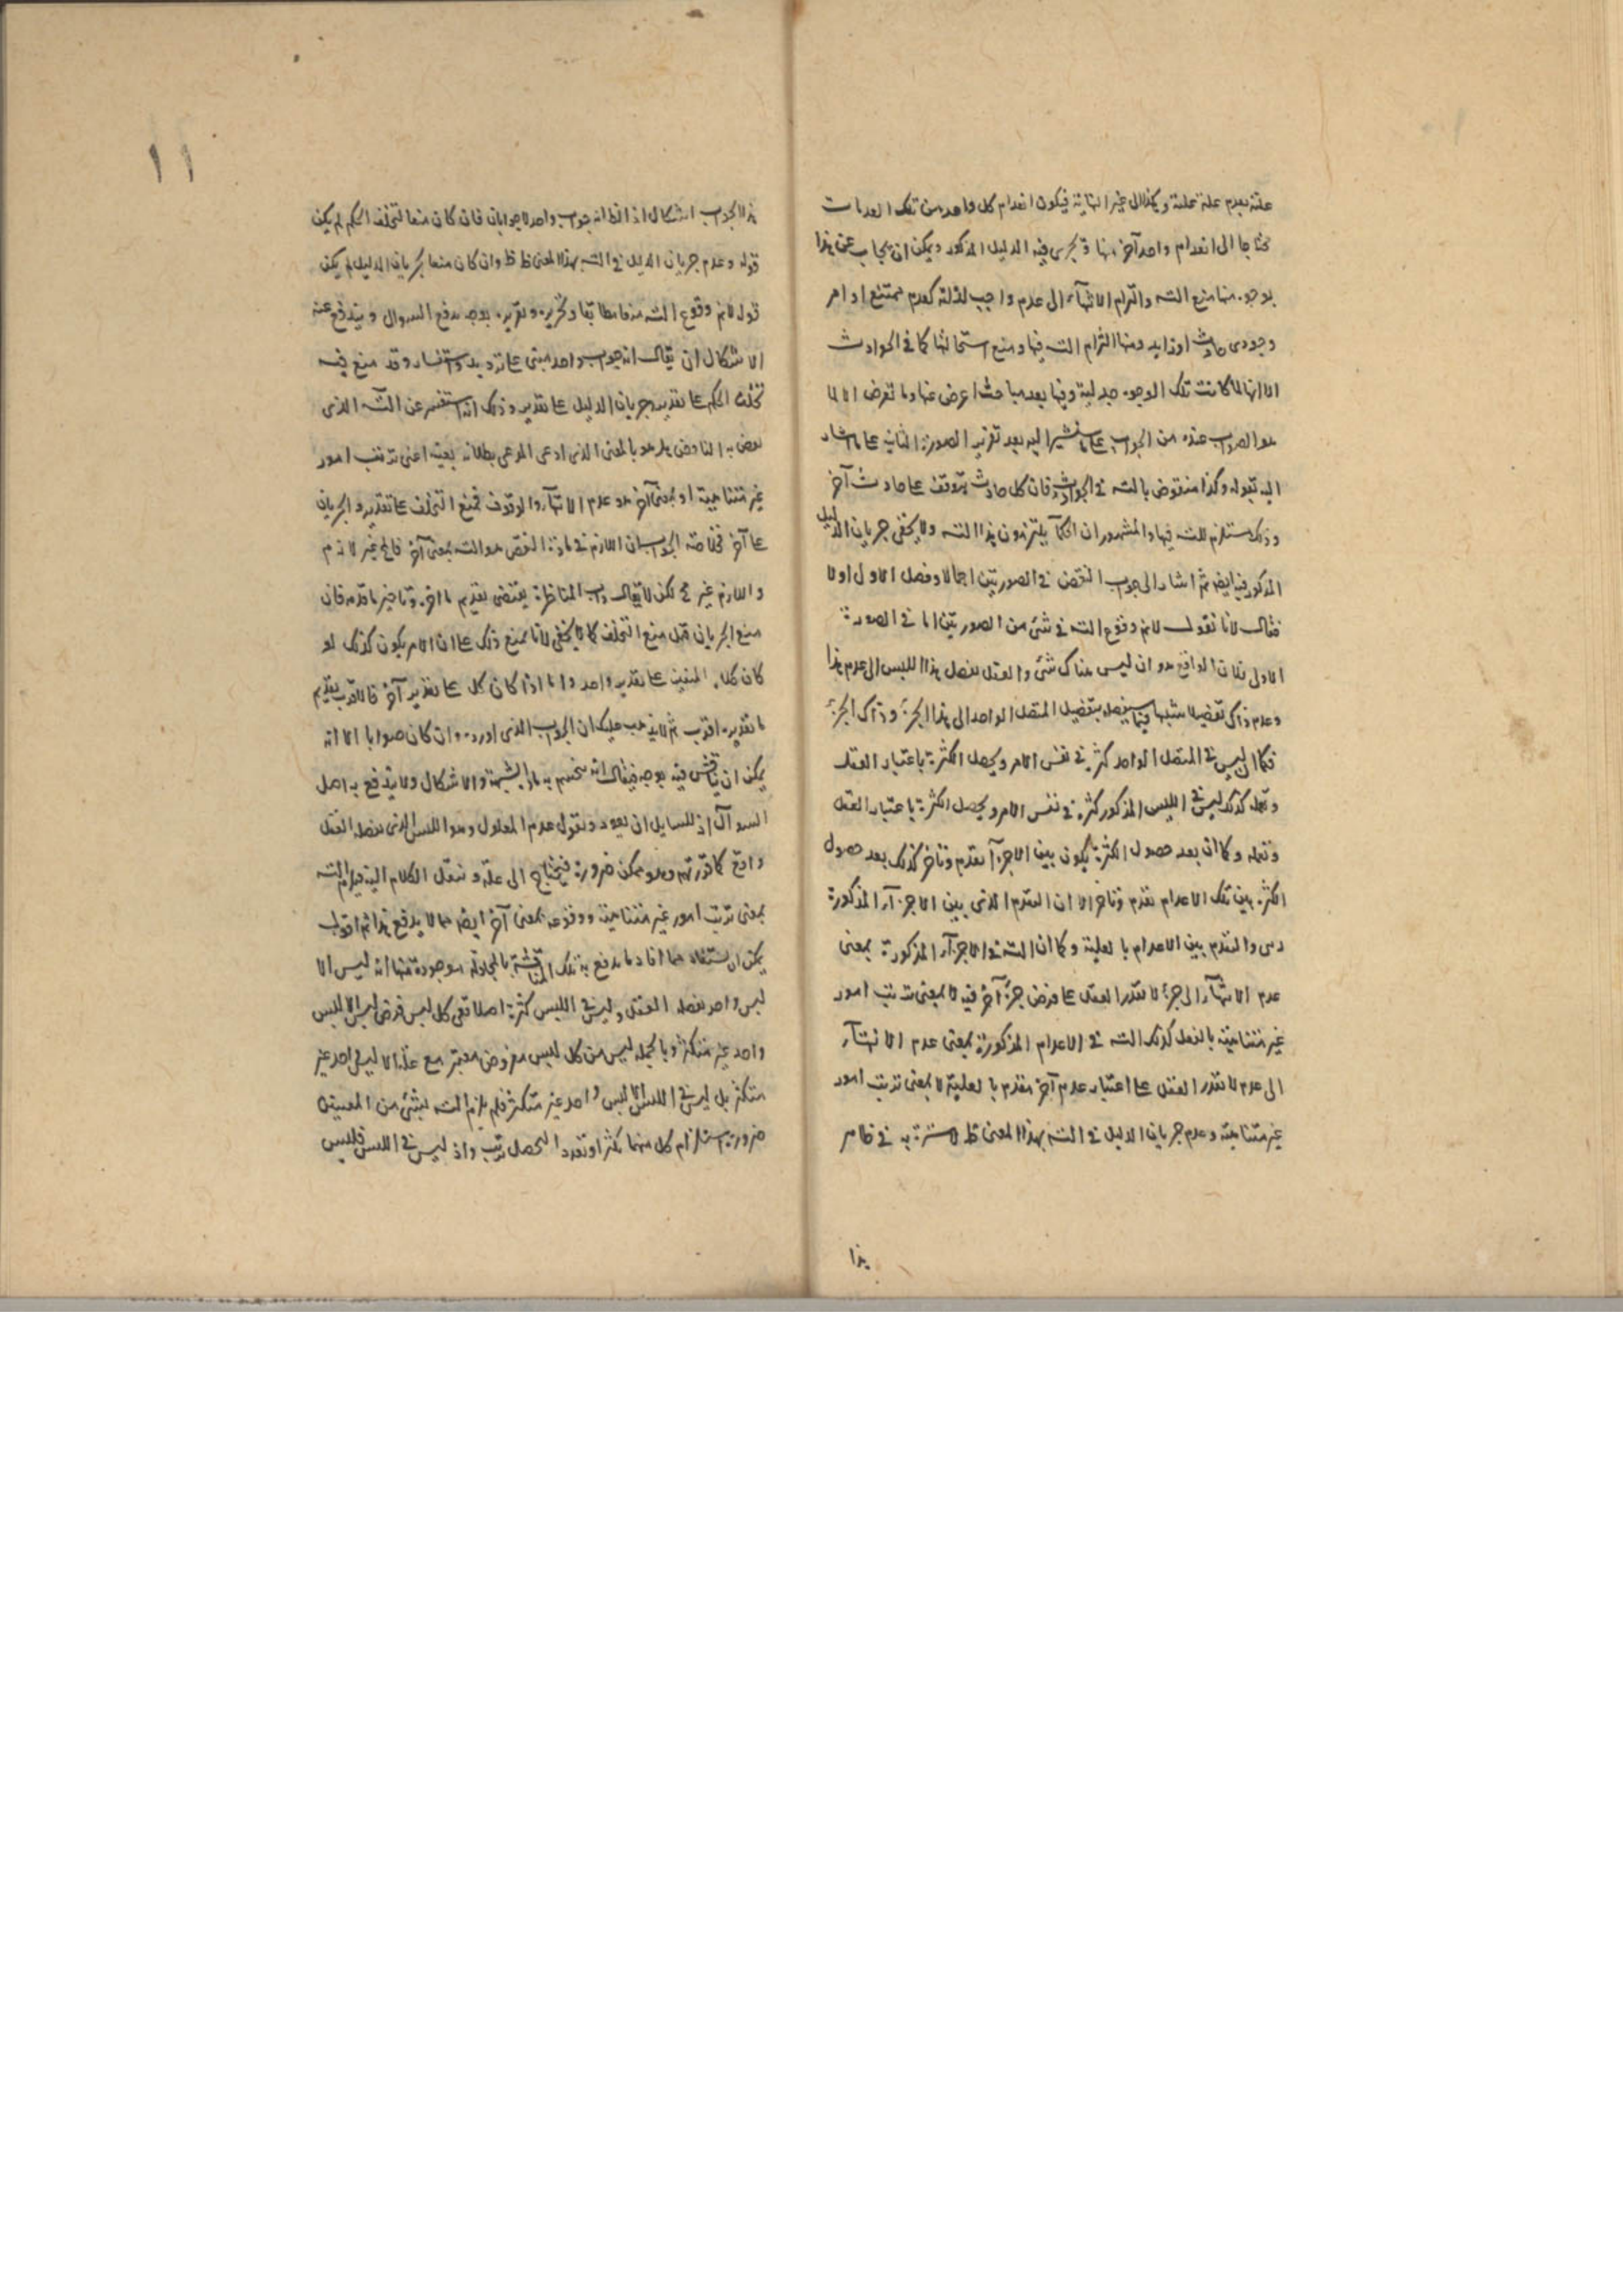 علته بعدم علة علته وهكذا الى غير النهاية فيكون انعدام كل واحد من تلك العدمات
محتاجا الى انعدام واحد آخر منها فيجرى فيه الدليل المذكور ويمكن ان يجاب عن هذا
بوجوه منها منع التسـ والتزام الانتهآء الى عدم واجب لذاته كعدم ممتنع او امر
وجودى حادث او زايد ومنها التزام التسـ فيها ومنع استحالتها كما فى الحوادث
الا انها لما كانت تلك الوجوه جدلية وفيها بعد مباحث اعرض عنها وما تعرض الا لما
هو الصواب عنده من الجواب على ما سنشير اليه بعد تقرير الصورة الثانية على ما اشار
اليه بقوله وكذا منقوض بالتسـ فى الحوادث فان كل حادث يتوقف على حادث آخر
وذلك مستلزم للتسـ فيها والمشهور ان الحكمآ يلتزمون هذا التسـ ولا يخفى جريان الدليل
المذكور فيها ايضا ثم اشار الى جواب النقض فى الصورتين اجمالا وفصل الاول اولا
فقال لانا نقول لانم وقوع التسـ فى شئ من الصورتين اما فى الصورة
الاولى فلان الواقع هو ان ليس هناك شئ والعقل يفصل هذا الليس الى عدم هذا
وعدم ذاك تفصيلا شبيها بتفصيل المتصل الواحد الى هذا الجزء وذاك الجزء
فكما ان ليس فى المتصل الواحد كثرة فى نفس الامر ويحصل الكثرة باعتبار العقل
وتعمله كذلك ليس فى الليس المذكور كثرة فى نفس الامر ويحصل الكثرة باعتبار العقل
وتعمله وكما ان بعد حصول الكثرة يكون بين الاجزآ تقدم وتاخر كذلك بعد حصول
الكثرة بين تلك الاعدام تقدم وتاخر الا ان التقدم الذى بين الاجزآء المذكورة
والتقدم بين الاعدام بالعلية وكما ان التسـ فى الاجزآء المذكورة بمعنى
عدم الانتهآء الى جزء لا يقدر العقل على فرض جزء آخر فيه لا بمعنى ترتب امور
غير متناهية بالفعل كذلك التسـ فى الاعدام المذكورة بمعنى عدم الانتهآء
الى عدم لا يقدر العقل على اعتبار عدم آخر مقدم بالعلية لا بمعنى ترتب امور
غير متناهية وعدم جريان الدليل فى التسـ بهذا المعنى ظ لا سترة به فى ظاهر
هذا
١١
هذا الجواب اشكال اذ الظ انه جواب واحد لا جوابان فان كان منعا لتخلف الحكم لم يكن
قوله وعدم جريان الدليل فى التسـ بهذا المعنى ظ ظ وان كان منعا لجريان الدليل لم يكن
قوله لانم وقوع التسـ منعا مطابقا وتحريره وتقريره بوجه يدفع السوال ويندفع عنه
الاشكال ان يقال انه جواب واحد مبنى على ترديد واستفسار وقد منع فيه
تخلف الحكم على تقدير وجريان الدليل على تقدير وذلك انه استفسر عن التسـ الذى
نقض به الناقض هل هو بالمعنى الذى ادعى المدعى بطلانه بعينه اعنى ترتب امور
غير متناهية او بمعنى آخر هو عدم الانتهآء والوقوف فمنع التخلف على تقدير والجريان
على آخر فخلاصة الجواب ان اللازم فى مادة النقض هو التسـ بمعنى آخر فالمح غير لازم
واللازم غير مح لكن لا يقال داب المناظرة يقتضى تقديم ما اخره وتاخير ما قدمه فان
منع الجريان قبل منع التخلف كما لا يخفى لانا نمنع ذلك على ان الامر يكون كذلك لو
كان كلا المنعين على تقدير واحد واما اذا كان كل على تقدير آخر فالاقرب تقديم
ما تقديره اقرب ثم لا يذهب عليك ان الجواب الذى اورده وان كان صوابا الا انه
يمكن ان يناقش فيه بوجه فيقال انه ينحسم به مادة الشبهة والاشكال ولا يندفع به اصل
السوآل اذ للسايل ان يعود ونقول عدم المعلول وهو الليس الذى يفصله العقل
واقع كما قررتم وهو ممكن ضرورة فيحتاج الى علة وننقل الكلام اليه فيلزم التسـ
بمعنى ترتب امور غير متناهية ووقوعه بمعنى آخر ايضا مما لا يدفع هذا ثم اقول
يمكن ان يستفاد مما افاد ما يدفع به تلك المناقشة بالمجادلة موجودة منها انه ليس الا
ليس واحد يفصله العقل وليس فى الليس كثرة اصلا فكل ليس فرض ليس الا ليس
واحد غير متكثر وبالجملة ليس من كل ليس مفروض معتبر مع علة الا ليس واحد غير
متكثر بل ليس فى الليس الا ليس واحد غير متكثر فلم يلزم التسـ بشئ من المعنيين
ضرورة استلزام كل منهما تكثرا وتعددا لتحصل ترتب واذ ليس فى الليس فليس